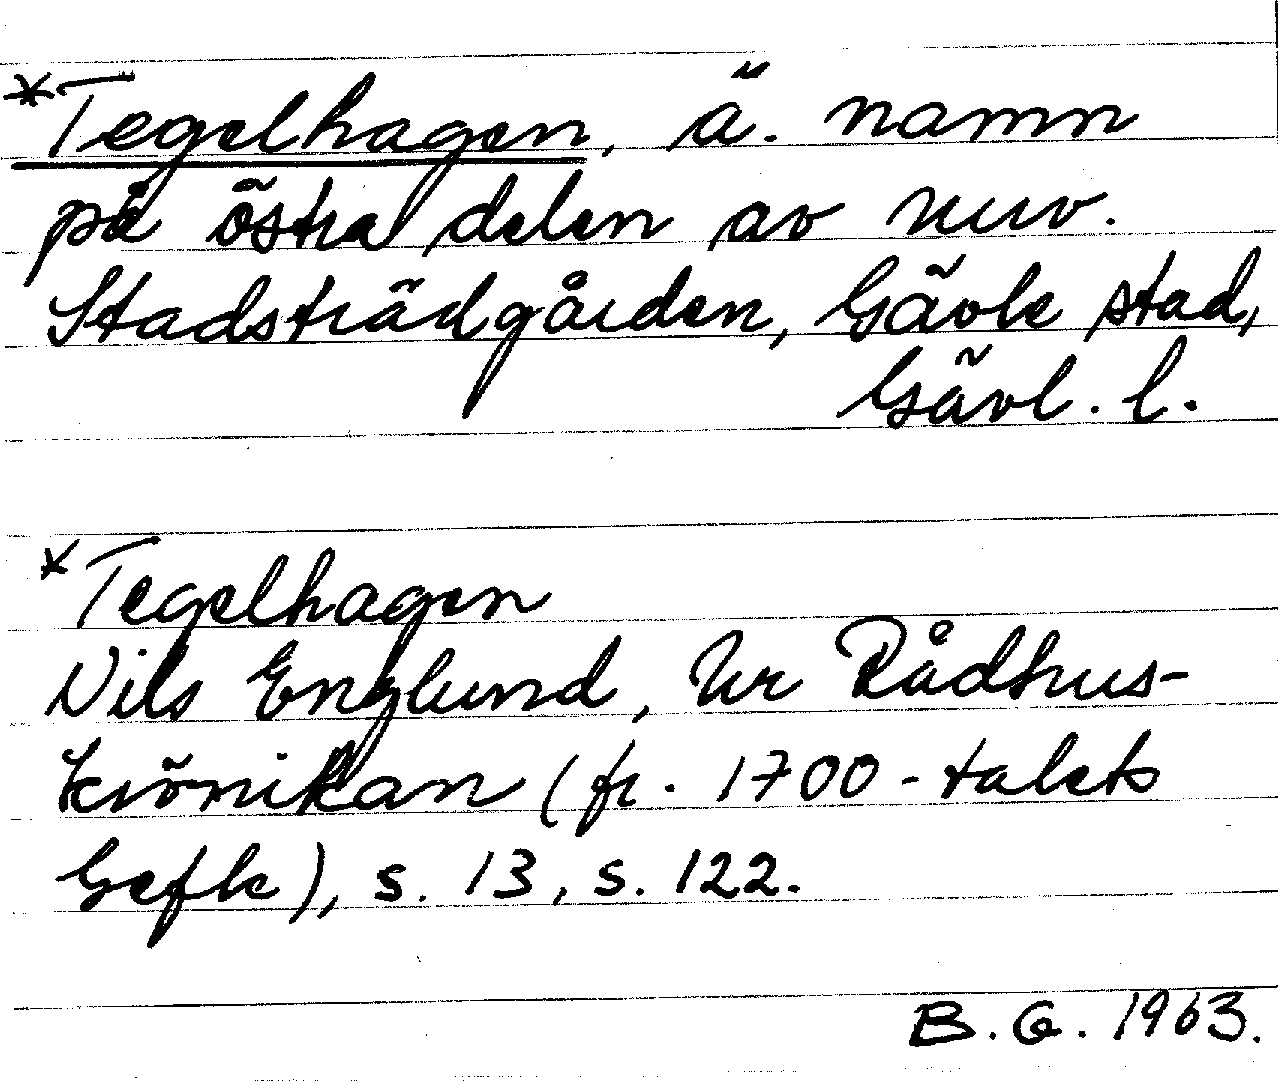 *Tegelhagen, ä. namn
på östra delen av nuv.
Stadsträdgården, Gävle stad,
Gävl. l.
*Tegelhagen
Nils Englund, Ur Rådhus-
krönikan (fr. 1700-talets
Gefle), s. 13, s. 122.
B. G. 1963.